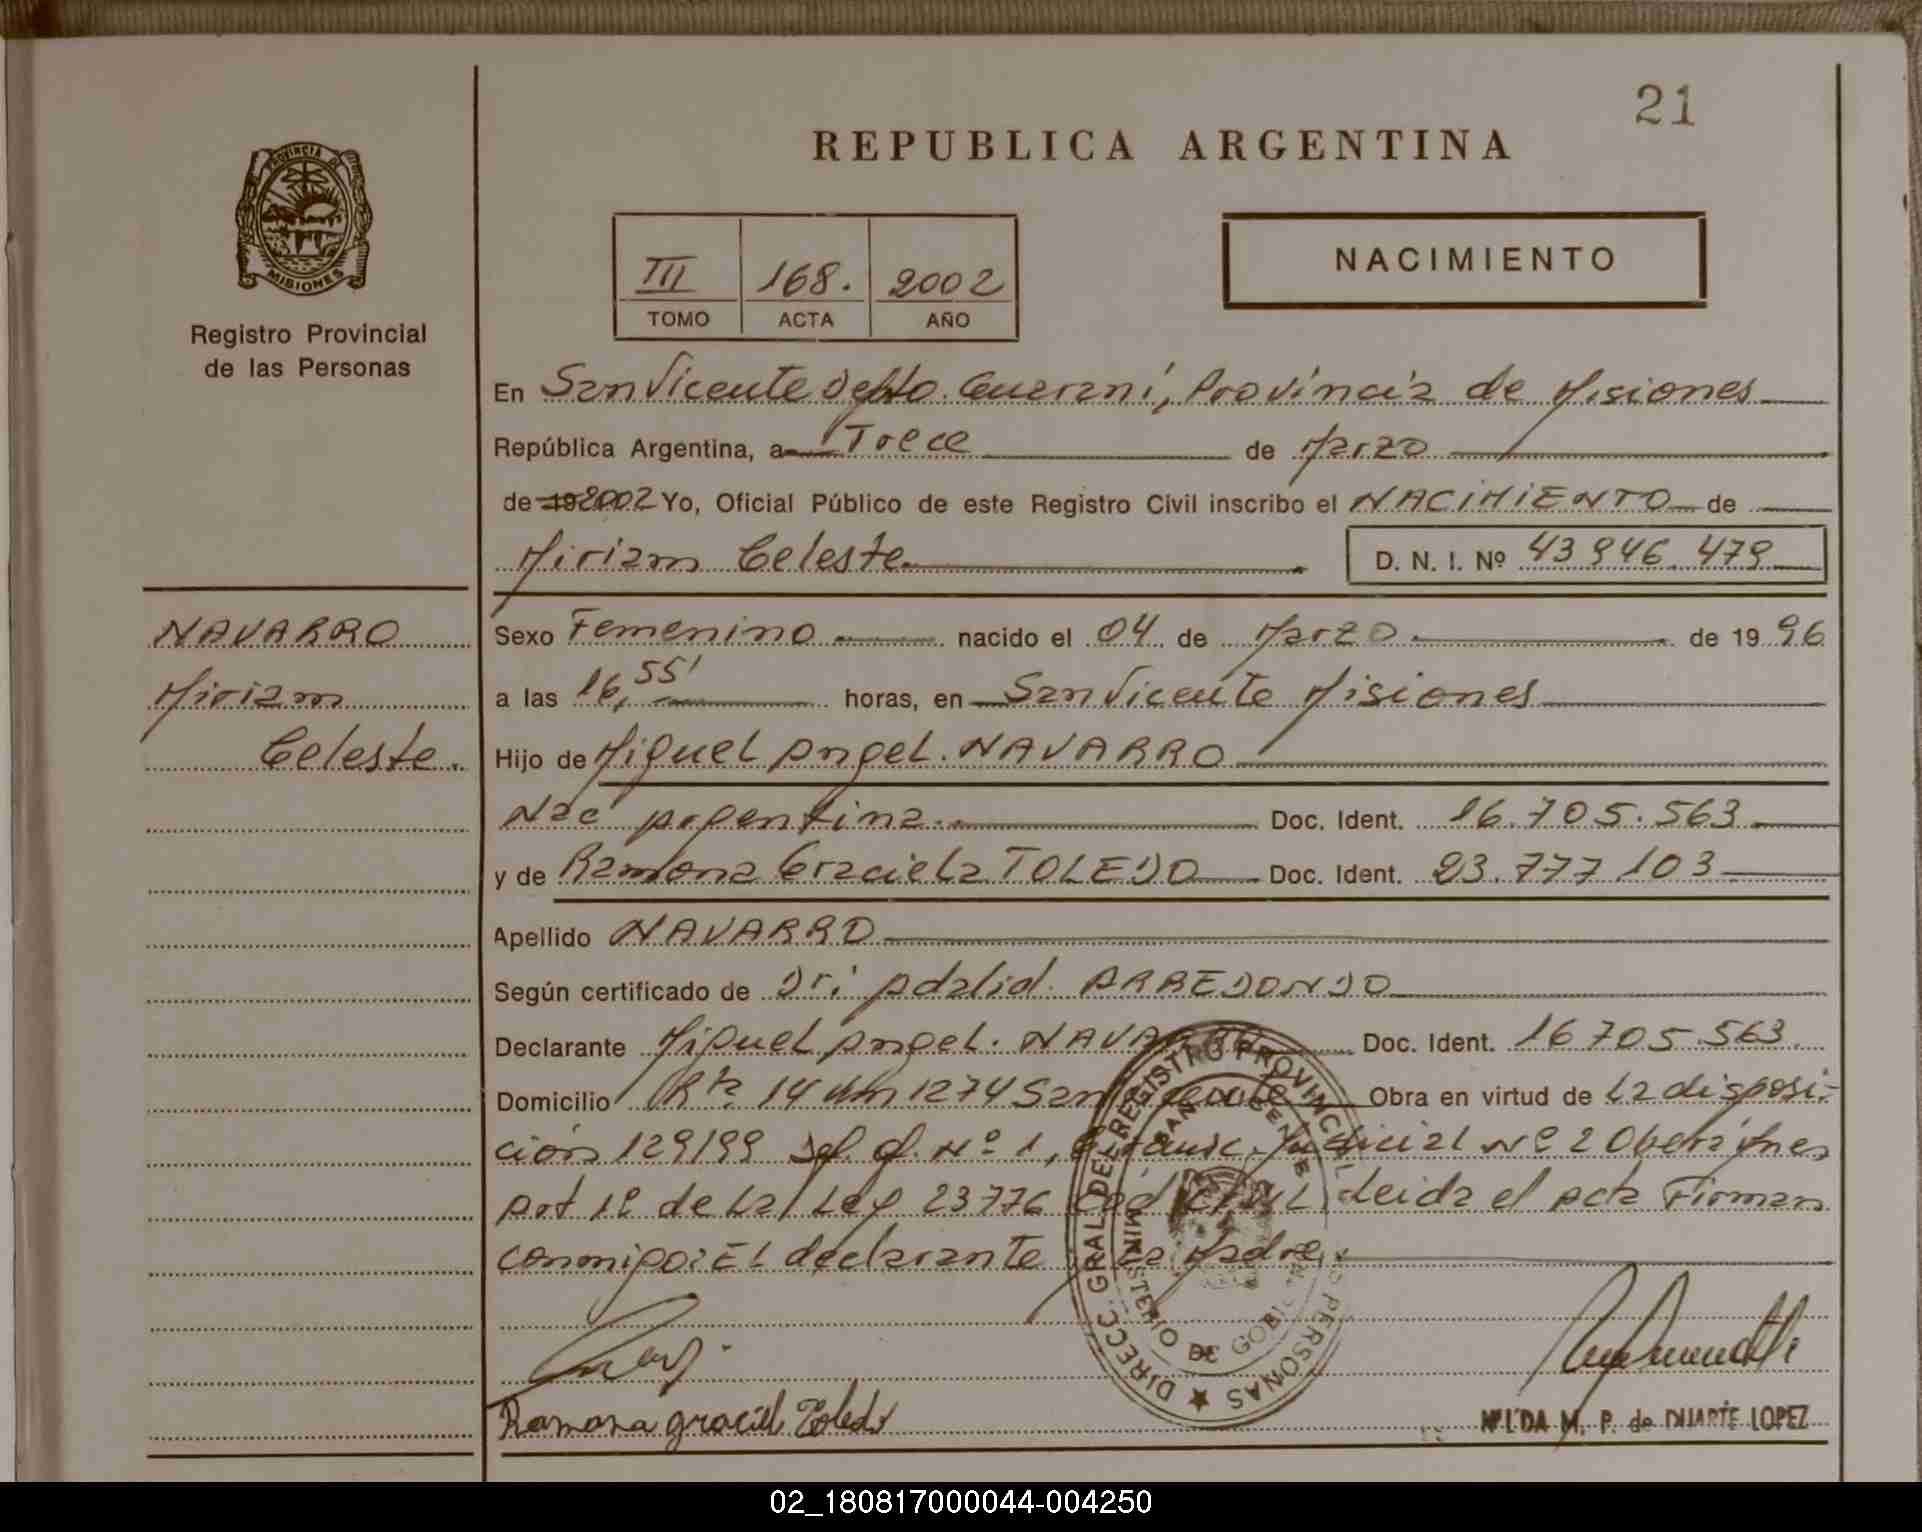 21
REPUBLICA ARGENTINA
PROVINCIA DE
MISIONES
Registro Provincial
de las Personas
III 168. 2002
TOMO ACTA AÑO
NACIMIENTO
En San Vicente Depto. Guarani, Provincia de Misiones
República Argentina, a Trece de Marzo
de 19 2002 Yo, Oficial Público de este Registro Civil inscribo el NACIMIENTO de
Miriam Celeste D. N. I. Nº 43 946. 479
NAVARRO
Miriam
Celeste.
Sexo Femenino nacido el 04 de Marzo de 19 96
a las 16,55' horas, en San Vicente Misiones
Hijo de Miguel Angel. NAVARRO
Nac Argentina. Doc. Ident. 16.705.563
y de Ramona Graciela TOLEDO Doc. Ident. 23.777 103
Apellido NAVARRO
Según certificado de Dri Adalid. ARREDONDO
Declarante Miguel Angel. NAVARRO Doc. Ident. 16 705.563.
Domicilio Rta 14 Km 1274 San Vicente Obra en virtud de La disposi-
ción 129/99 Def. Of. Nº 1, Judicial Nº 2 Obera Mnes
Art 1º de La Ley 23776 Leida el Acta Firman
conmigo: EL declarante y La Madre
DIRECC. GRAL. DEL REGISTRO PROVINCIAL DE LAS PERSONAS
SAN VICENTE
MINISTERIO DE GOBIERNO
Ramona graciel Toledo
NILDA M. P. de DUARTE LOPEZ
02_180817000044-004250